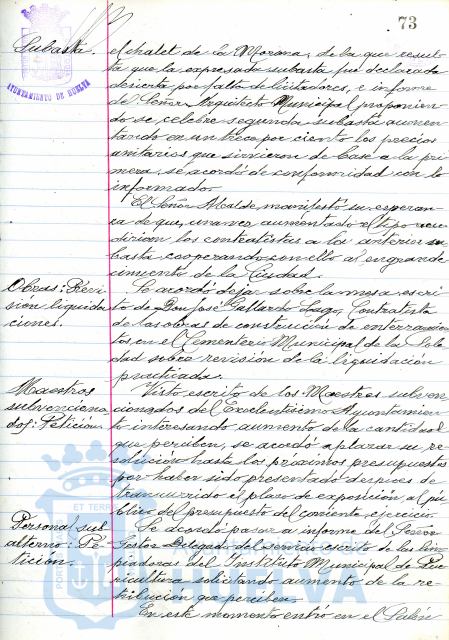 73
AYUNTAMIENTO DE HUELVA
Subasta.
el chalet de la Morana, de la que resul-
ta que la expresada subasta fue declarada
desierta por falta de licitadores, e informe
del Señor Arquitecto Municipal proponien-
do se celebre segunda subasta aumen-
tando en un trece por ciento los precios
unitarios que sirvieron de base a la pri-
mera, se acordó de conformidad con lo
informado.
El Señor Alcalde manifestó su esperan-
za de que, una vez aumentado el tipo acu-
dirían los contratistas a la anterior su-
basta cooperando con ello al engrande-
cimiento de la Ciudad.
Obras: Revi-
sión liquida-
ciones.
Se acordó dejar sobre la mesa escri-
to de Don José Gallardo Lago, Contratista
de las obras de construcción de enterramien-
tos en el Cementerio Municipal de la Sole-
dad sobre revisión de la liquidación
practicada.
Maestros
subvenciona-
dos: Petición
Visto escrito de los Maestros subven-
cionados del Excelentísimo Ayuntamien-
to interesando aumento de la cantidad
que perciben, se acordó aplazar su re-
solución hasta los próximos presupuestos
por haber sido presentado después de
transcurrido el plazo de exposición al pú-
blico del presupuesto del corriente ejercicio.
Personal sub-
alterno: Pe-
tición.
Se acordó pasar a informe del Señor
Gestor Delegado del servicio escrito de las lim-
piadoras del Instituto Municipal de Pue-
ricultura solicitando aumento de la re-
tribución que perciben.
En este momento entró en el Salón